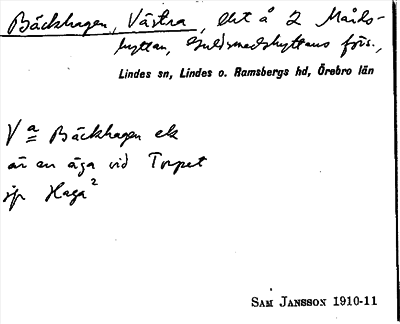 Bäckhagen, Västra, ekt å 2 Mårds-
hyttan, Guldsmedshyttans förs.,
Lindes sn, Lindes o. Ramsbergs hd, Örebro län
Va Bäckhagen ek
är en äga vid Torpet
jfr Haga 2
SAM JANSSON 1910-11